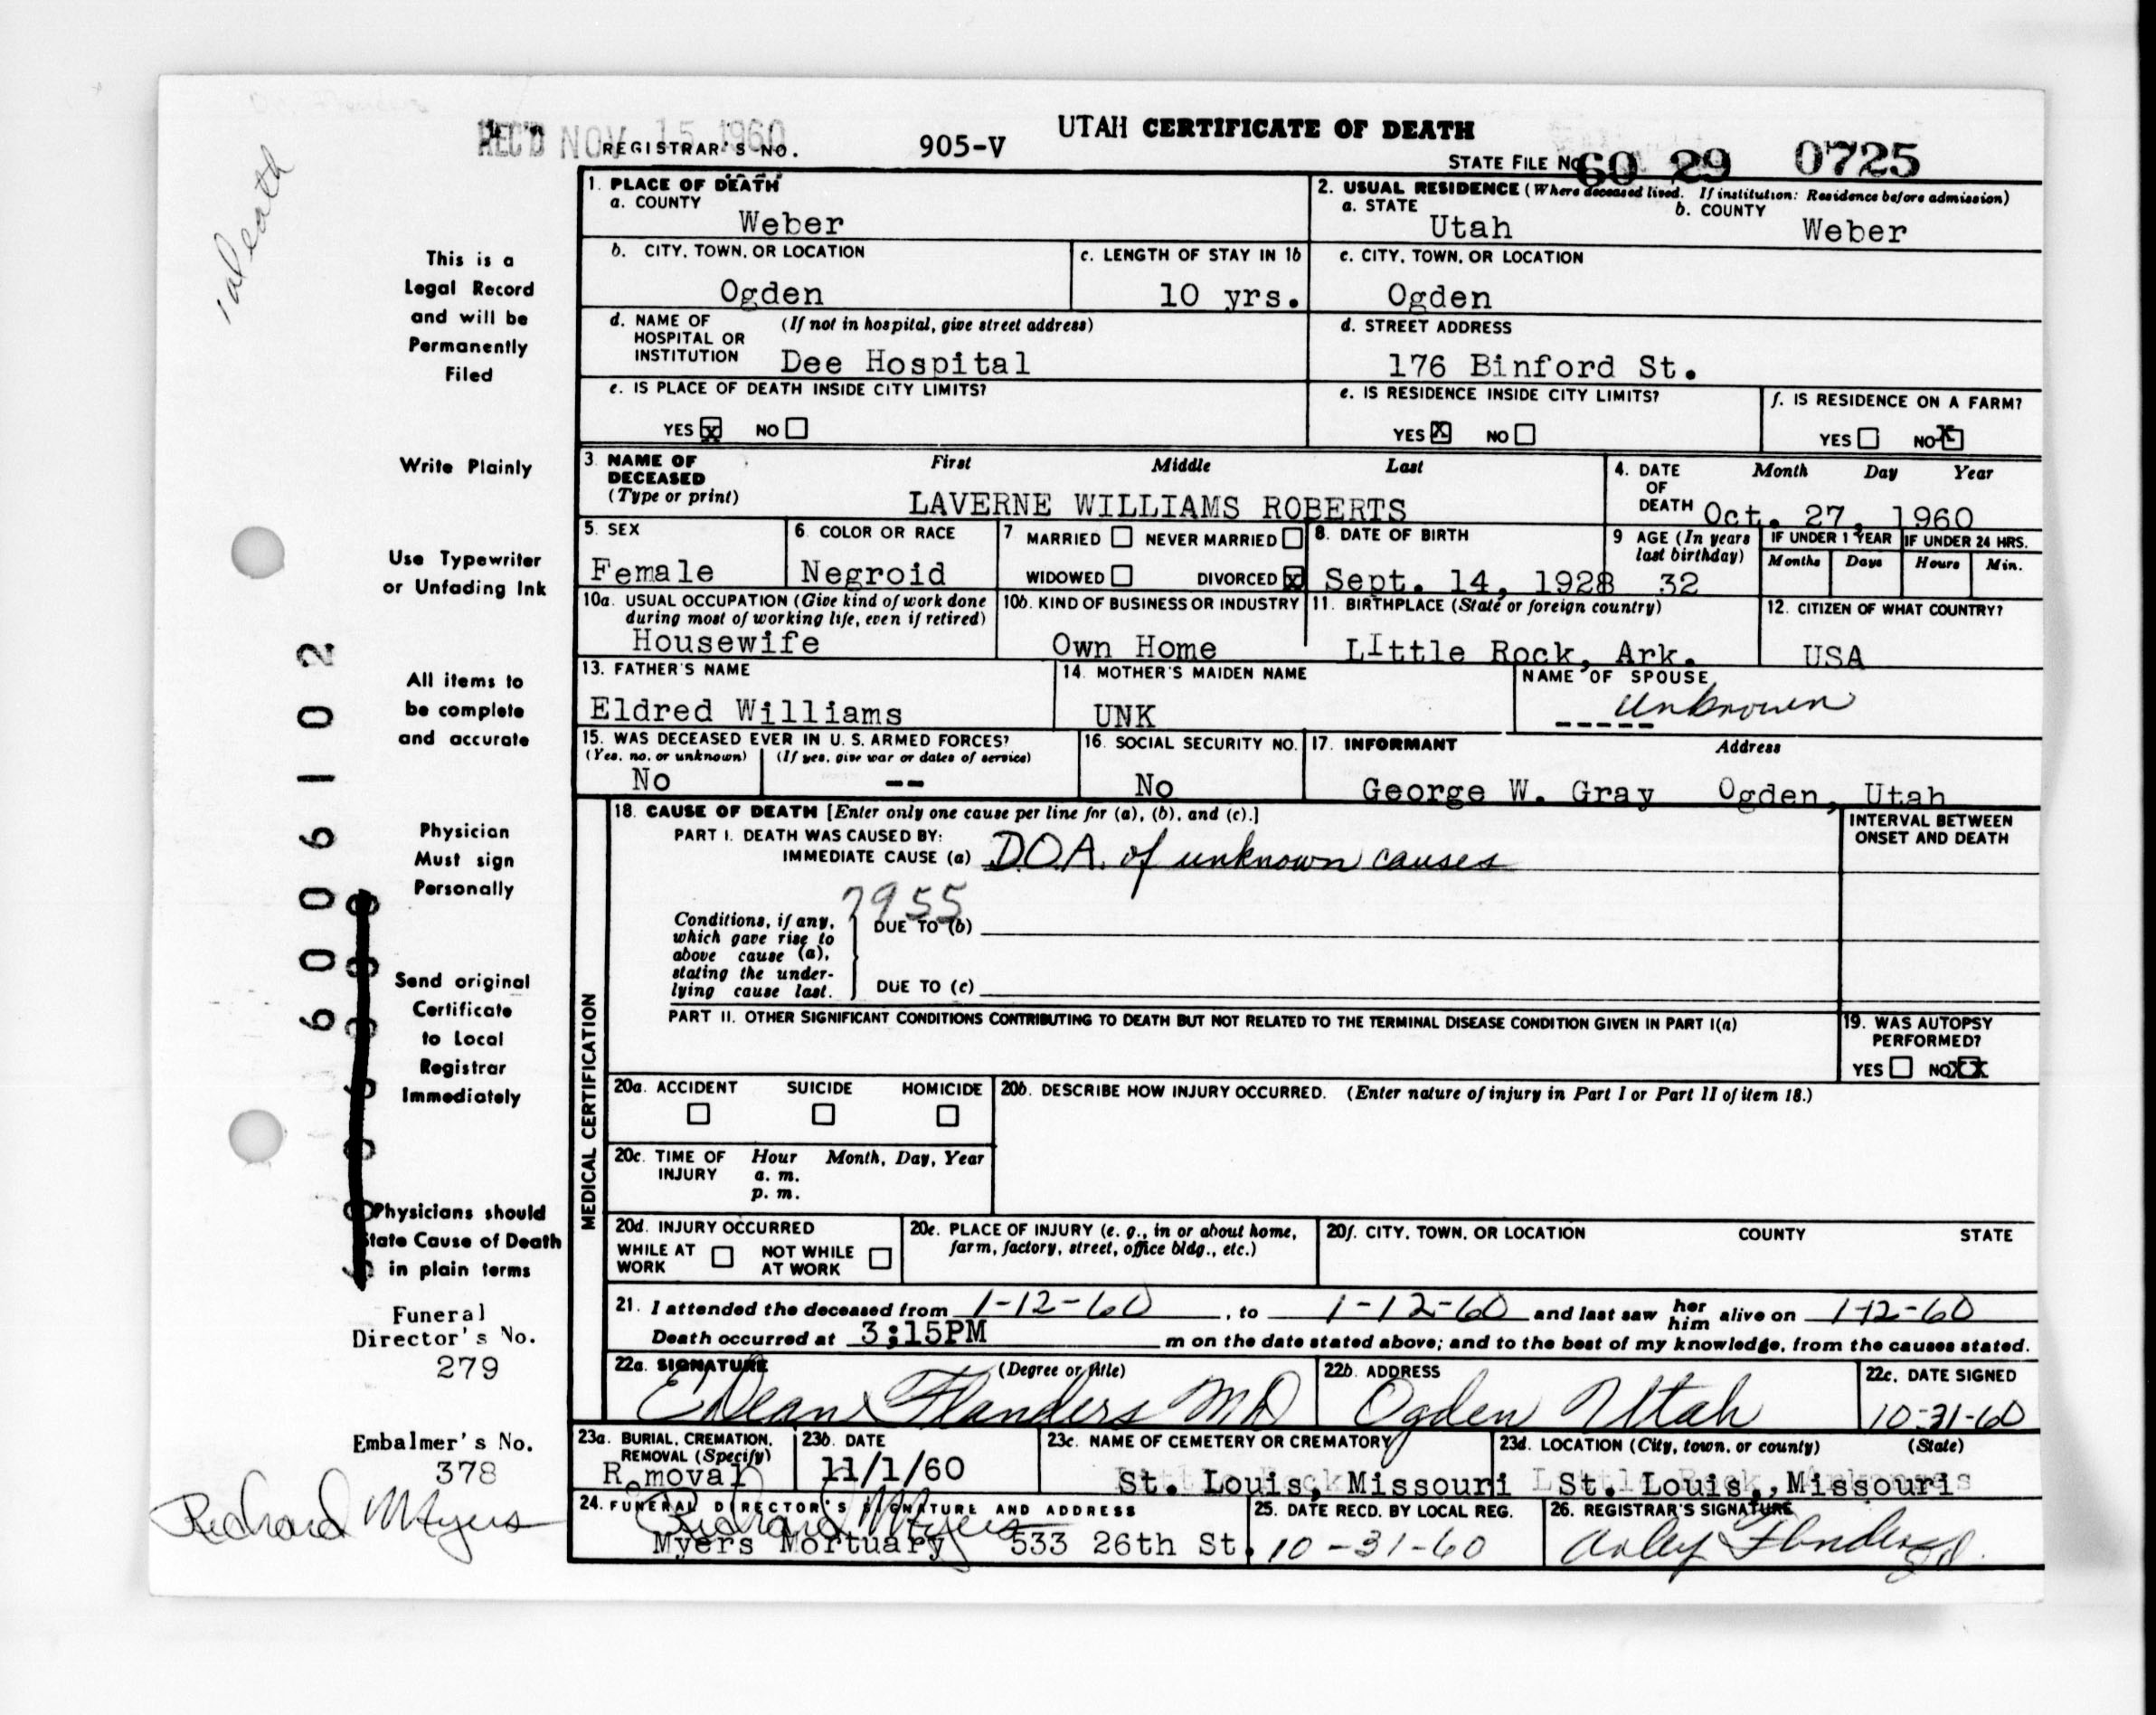 UTAH CERTIFICATE OF DEATH
REC'D NOV 15 1960
REGISTRAR'S NO. 905-V
STATE FILE NO. 60 29 0725
1. PLACE OF DEATH
a. COUNTY
Weber
2. USUAL RESIDENCE (Where deceased lived. If institution: Residence before admission)
a. STATE b. COUNTY
Utah Weber
b. CITY, TOWN, OR LOCATION
Ogden
c. LENGTH OF STAY IN 1b
10 yrs.
c. CITY, TOWN, OR LOCATION
Ogden
d. NAME OF HOSPITAL OR INSTITUTION (If not in hospital, give street address)
Dee Hospital
d. STREET ADDRESS
176 Binford St.
e. IS PLACE OF DEATH INSIDE CITY LIMITS?
YES X NO
e. IS RESIDENCE INSIDE CITY LIMITS?
YES X NO
f. IS RESIDENCE ON A FARM?
YES NO X
3. NAME OF DECEASED (Type or print) First Middle Last
LAVERNE WILLIAMS ROBERTS
4. DATE OF DEATH Month Day Year
Oct. 27, 1960
5. SEX
Female
6. COLOR OR RACE
Negroid
7 MARRIED NEVER MARRIED
WIDOWED DIVORCED X
8. DATE OF BIRTH
Sept. 14, 1928
9 AGE (In years last birthday)
32
IF UNDER 1 YEAR
Months Days
IF UNDER 24 HRS.
Hours Min.
10a. USUAL OCCUPATION (Give kind of work done during most of working life, even if retired)
Housewife
10b. KIND OF BUSINESS OR INDUSTRY
Own Home
11. BIRTHPLACE (State or foreign country)
LIttle Rock, Ark.
12. CITIZEN OF WHAT COUNTRY?
USA
13. FATHER'S NAME
Eldred Williams
14. MOTHER'S MAIDEN NAME
UNK
NAME OF SPOUSE
----- Unknown
15. WAS DECEASED EVER IN U. S. ARMED FORCES?
(Yes, no, or unknown) (If yes, give war or dates of service)
No --
16. SOCIAL SECURITY NO.
No
17. INFORMANT Address
George W. Gray Ogden, Utah
MEDICAL CERTIFICATION
18. CAUSE OF DEATH [Enter only one cause per line for (a), (b), and (c).]
PART I. DEATH WAS CAUSED BY:
IMMEDIATE CAUSE (a) D.O.A. of unknown causes
INTERVAL BETWEEN ONSET AND DEATH
7955
Conditions, if any, which gave rise to above cause (a), stating the underlying cause last.
DUE TO (b)
DUE TO (c)
PART II. OTHER SIGNIFICANT CONDITIONS CONTRIBUTING TO DEATH BUT NOT RELATED TO THE TERMINAL DISEASE CONDITION GIVEN IN PART I(a)
19. WAS AUTOPSY PERFORMED?
YES NO XX
20a. ACCIDENT SUICIDE HOMICIDE
20b. DESCRIBE HOW INJURY OCCURRED. (Enter nature of injury in Part I or Part II of item 18.)
20c. TIME OF INJURY Hour Month, Day, Year
a. m.
p. m.
20d. INJURY OCCURRED
WHILE AT WORK NOT WHILE AT WORK
20e. PLACE OF INJURY (e. g., in or about home, farm, factory, street, office bldg., etc.)
20f. CITY, TOWN, OR LOCATION COUNTY STATE
21. I attended the deceased from 1-12-60, to 1-12-60 and last saw her him alive on 1-12-60
Death occurred at 3;15PM m on the date stated above; and to the best of my knowledge, from the causes stated.
22a. SIGNATURE (Degree or title)
E Dean Flanders MD
22b. ADDRESS
Ogden Utah
22c. DATE SIGNED
10-31-60
23a. BURIAL, CREMATION, REMOVAL (Specify)
R moval
23b. DATE
11/1/60
23c. NAME OF CEMETERY OR CREMATORY
St. Louis, Missouri
23d. LOCATION (City, town, or county) (State)
St. Louis, Missouri
24. FUNERAL DIRECTOR'S SIGNATURE AND ADDRESS
Richard Myers
Myers Mortuary 533 26th St.
25. DATE RECD. BY LOCAL REG.
10-31-60
26. REGISTRAR'S SIGNATURE
This is a
Legal Record
and will be
Permanently
Filed
Write Plainly
Use Typewriter
or Unfading Ink
All items to
be complete
and accurate
Physician
Must sign
Personally
Send original
Certificate
to Local
Registrar
Immediately
Physicians should
State Cause of Death
in plain terms
Funeral
Director's No.
279
Embalmer's No.
378
Richard Myers
60006102